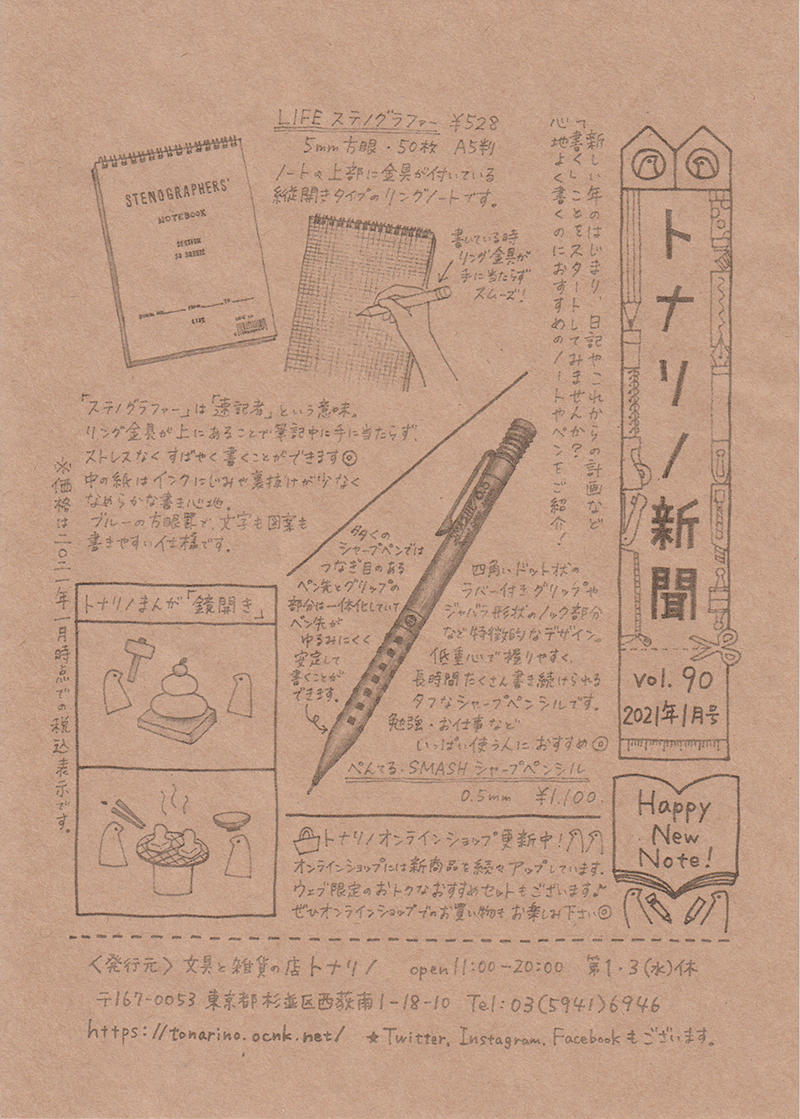 トナリノ新聞
vol. 90
2021年1月号
Happy
New
Note!
新しい年のはじまり、日記やこれからの計画など
「書く」ことをスタートしてみませんか?
心地よく書くのにおすすめのノートやペンをご紹介!
LIFE ステノグラファー ¥528
5mm方眼・50枚 A5判
ノートの上部に金具が付いている
縦開きタイプのリングノートです。
STENOGRAPHERS'
NOTEBOOK
SECTION
50 SHEETS
LIFE
書いている時
リング金具が
手に当たらず
スムーズ!
「ステノグラファー」は「速記者」という意味。
リング金具が上にあることで筆記中に手に当たらず、
ストレスなくすばやく書くことができます◎
中の紙はインクにじみや裏抜けが少なく
なめらかな書き心地。
ブルーの方眼罫で、文字も図案も
書きやすい仕様です。
多くの
シャープペンでは
つなぎ目のある
ペン先とグリップの
部分は一体化していて
ペン先が
ゆるみにくく
安定して
書くことが
できます。
四角いドット状の
ラバー付きグリップや
ジャバラ形状のノック部分
など特徴的なデザイン。
低重心で握りやすく、
長時間たくさん書き続けられる
タフなシャープペンシルです。
勉強・お仕事など
いっぱい使う人におすすめ◎
ぺんてる・SMASH シャープペンシル
0.5mm ¥1,100.
※価格は二〇二一年一月時点での税込表示です。
トナリノまんが「鏡開き」
トナリノオンラインショップ更新中!
オンラインショップには新商品を続々アップしています。
ウェブ限定のおトクなおすすめセットもございます。
ぜひオンラインショップでのお買い物もお楽しみ下さい◎
〈発行元〉文具と雑貨の店トナリノ open11:00-20:00 第1・3(水)休
〒167-0053 東京都杉並区西荻南1-18-10 Tel:03(5941)6946
https://tonarino.ocnk.net/ ★Twitter, Instagram, Facebookもございます。